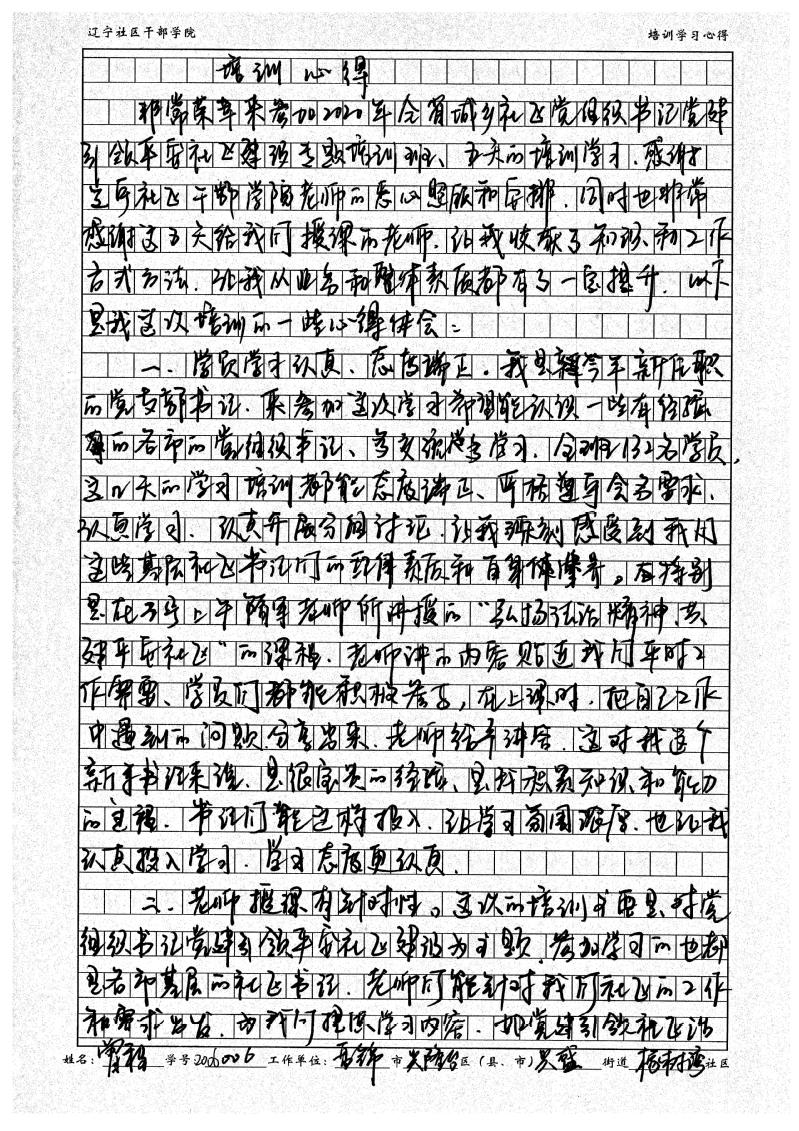 辽宁社区干部学院 培训学习心得
培训心得
非常荣幸来参加2020年全省城乡社区党组织书记党建
引领平安社区建设专题培训班、五天的培训学习.感谢
辽宁社区干部学院老师的悉心照顾和安排.同时也非常
感谢这五天给我们授课的老师.让我收获了知识和工作
方式方法.让我从业务和整体素质都有了一定提升.以下
是我这次培训的一些心得体会:
一.学员学习认真、态度端正。我是今年新任职
的党支部书记.来参加这次学习希望能认识一些有经验
的各市的党组织书记、多交流学习.全班132名学员,
这几天的学习培训都能态度端正、严格遵守会务要求.
认真学习.认真开展分组讨论.让我深刻感受到我们
这些基层社区书记们的整体素质和自身。在特别
是在上午老师所讲授的“弘扬法治精神.共
建平安社区”的课程.老师讲的内容贴近我们平时工
作需要、学员们都能积极.在上课时.把自己工作
中遇到的问题分享出来.老师给予讲答.这对我这个
新手书记来说.是很宝贵的经验、是我积累知识和能力
的.书记们能这样投入.让学习氛围浓厚.也让我
认真投入学习.学习态度更认真.
二.老师授课有针对性。这次的培训主要是对党
组织书记党建引领平安社区建设为主题.参加学习的也都
是各市基层的社区书记.老师们能针对我们社区的工作
和需求出发.为我们提供学习内容.如党建引领社区治
姓名: 学号2006006 工作单位:盘锦市兴隆台区(县、市)兴盛街道社区